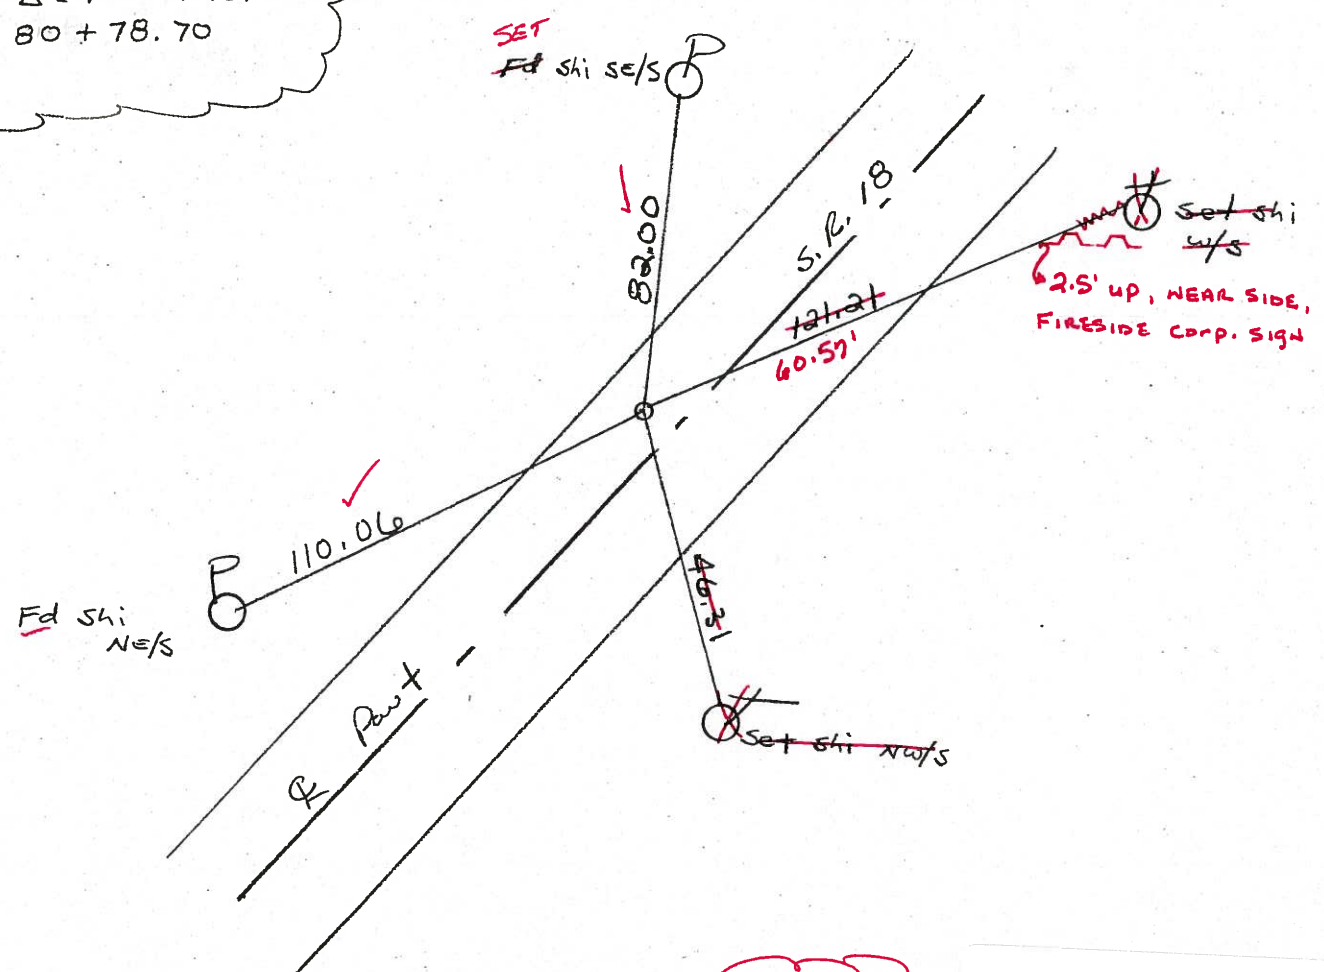 80 + 78.70
SET
Fd shi SE/S
82.00
S.R. 18
Set shi
W/S
2.5' UP, NEAR SIDE,
FIRESIDE CORP. SIGN
121.21
60.57'
110.06
Fd shi
NE/S
46.31
Pav't
Set shi NW/S